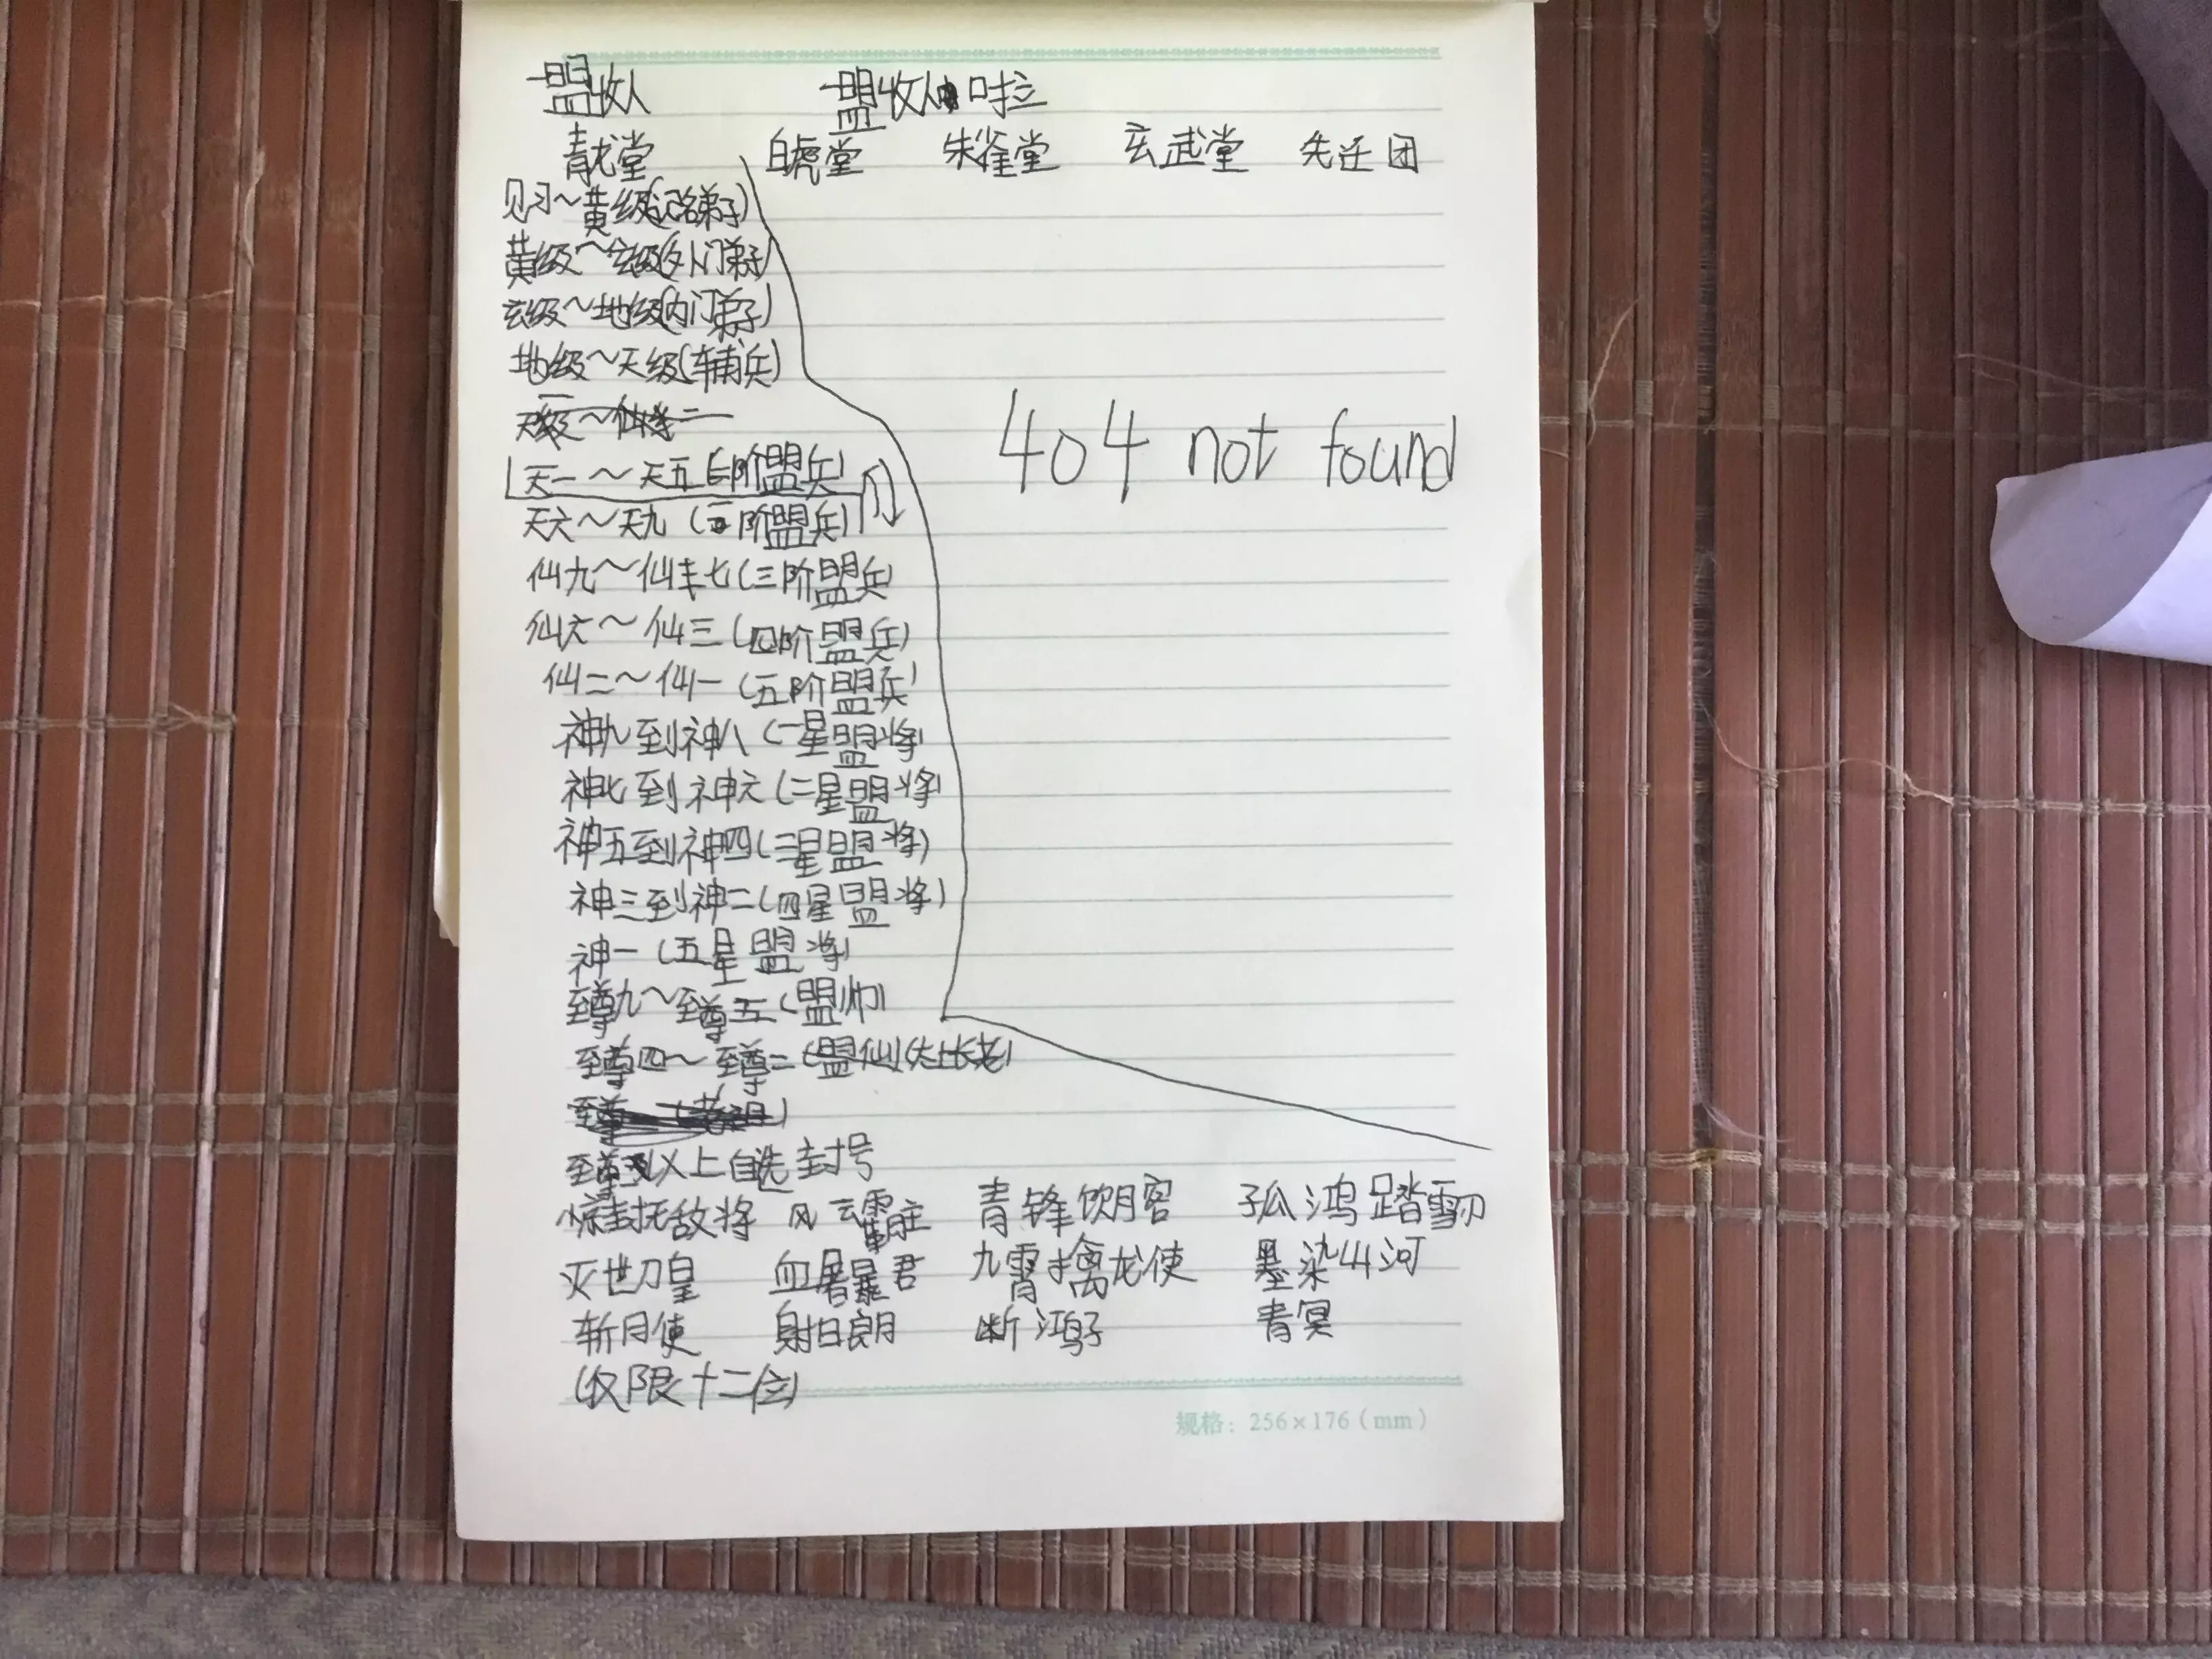 盟收人 盟收人啦
青龙堂 白虎堂 朱雀堂 玄武堂 先迁团
见习~黄级(记名弟子)
黄级~玄级(外门弟子)
玄级~地级(内门弟子)
地级~天级(辅兵)
天一~天五(二阶盟兵)
404 not found
天六~天九(一阶盟兵)
仙九~仙七(三阶盟兵)
仙六~仙三(四阶盟兵)
仙二~仙一(五阶盟兵)
神九到神八(一星盟将)
神七到神六(二星盟将)
神五到神四(三星盟将)
神三到神二(四星盟将)
神一(五星盟将)
至尊九~至尊五(盟帅)
至尊四~至尊二(盟仙)(太上长老)
至尊以上自选封号
惊封抚敌将 风云霸主 青锋饮月客 孤鸿踏雪刃
灭世刀皇 血屠暴君 九霄擒龙使 墨染山河
斩月使 射日郎 断鸿子 青冥
(仅限十二位)
规格:256×176(mm)